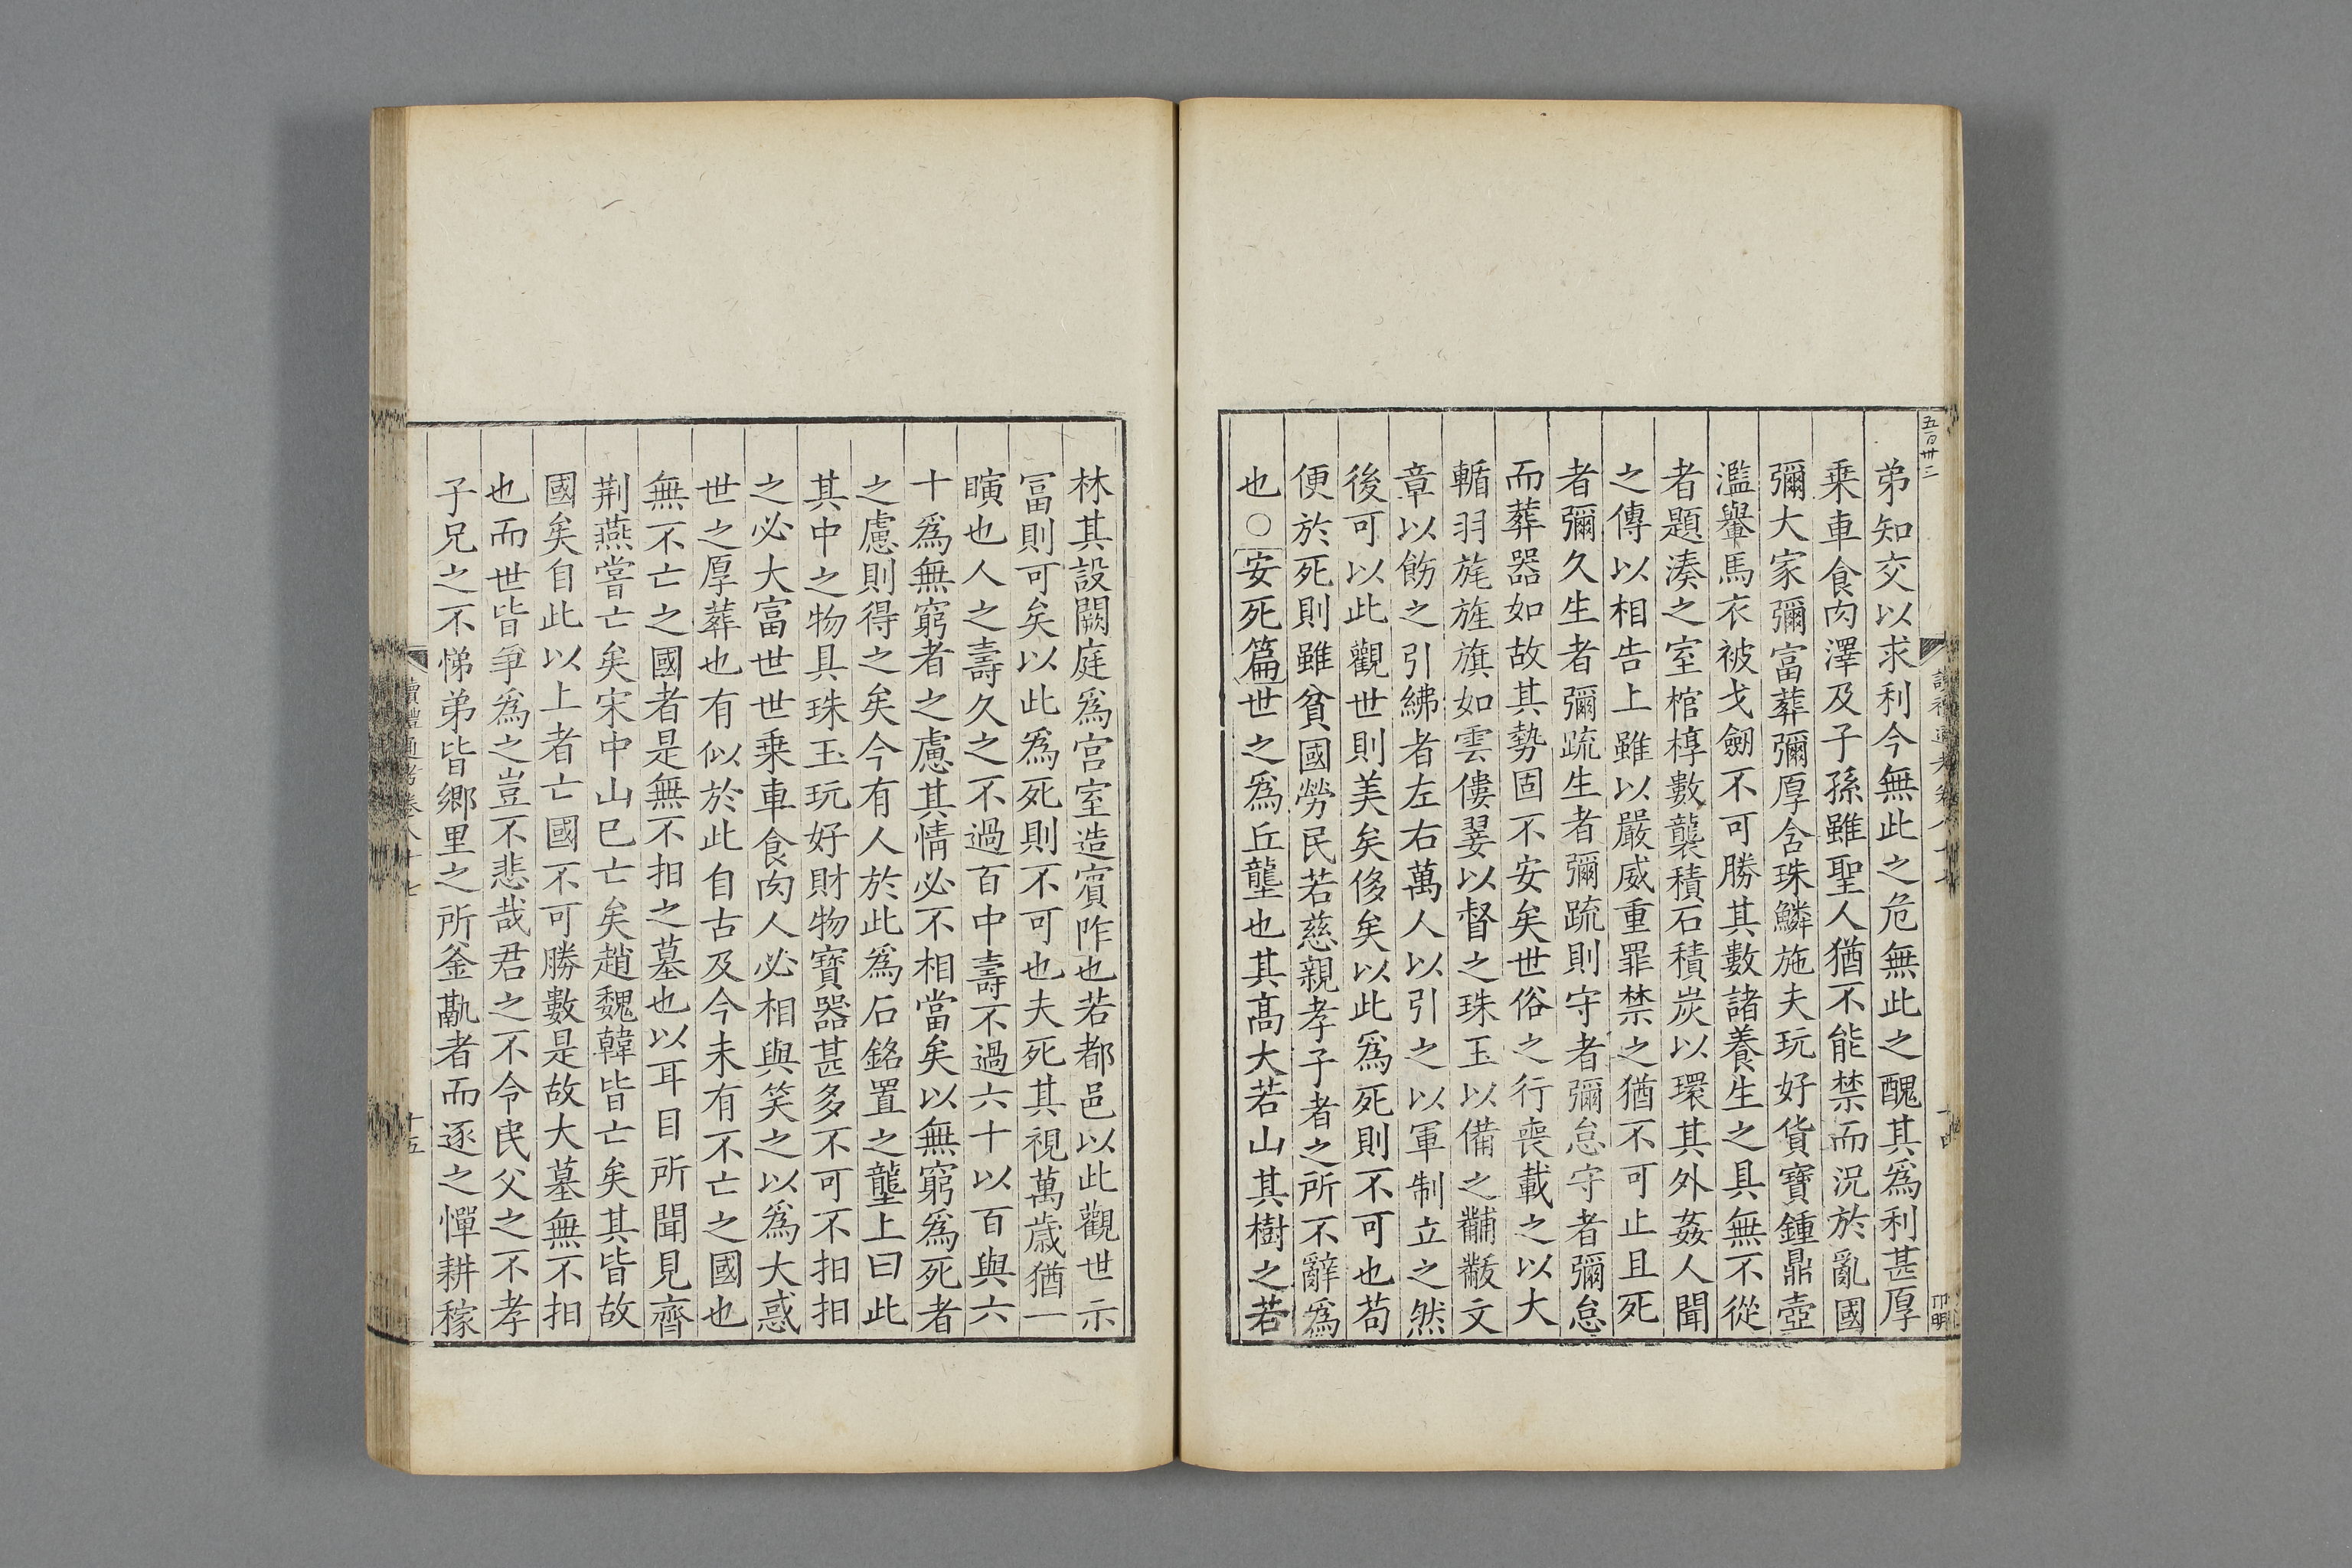 五百卅三
弟知交以求利今無此之危無此之醜其爲利甚厚
乗車食肉澤及子孫雖聖人猶不能禁而況於亂國
彌大家彌富葬彌厚含珠鱗施夫玩好貨寶鍾鼎壺
濫轝馬衣被戈劒不可勝其數諸養生之具無不從
者題湊之室棺椁數襲積石積炭以環其外姦人聞
之傳以相告上雖以嚴威重罪禁之猶不可止且死
者彌久生者彌疏生者彌疏則守者彌怠守者彌怠
而葬器如故其勢固不安矣世俗之行喪載之以大
輴羽旄旌旗如雲僂翣以督之珠玉以備之黼黻文
章以飭之引紼者左右萬人以引之以軍制立之然
後可以此觀世則美矣侈矣以此爲死則不可也苟
便於死則雖貧國勞民若慈親孝子者之所不辭爲
也○安死篇世之爲丘壟也其髙大若山其樹之若
林其設闕庭爲宫室造賓阼也若都邑以此觀世示
冨則可矣以此爲死則不可也夫死其視萬歳猶一
瞚也人之壽久之不過百中壽不過六十以百與六
十爲無窮者之慮其情必不相當矣以無窮爲死者
之慮則得之矣今有人於此爲石銘置之壟上曰此
其中之物具珠玉玩好財物寳器甚多不可不抇抇
之必大富世世乗車食肉人必相與笑之以爲大惑
世之厚葬也有似於此自古及今未有不亡之國也
無不亡之國者是無不抇之墓也以耳目所聞見齊
荆燕嘗亡矣宋中山巳亡矣趙魏韓皆亡矣其皆故
國矣自此以上者亡國不可勝數是故大墓無不抇
也而世皆爭爲之豈不悲哉君之不令民父之不孝
子兄之不悌弟皆鄉里之所釜䰛者而逐之憚耕稼
讀禮通考卷八十七
十五